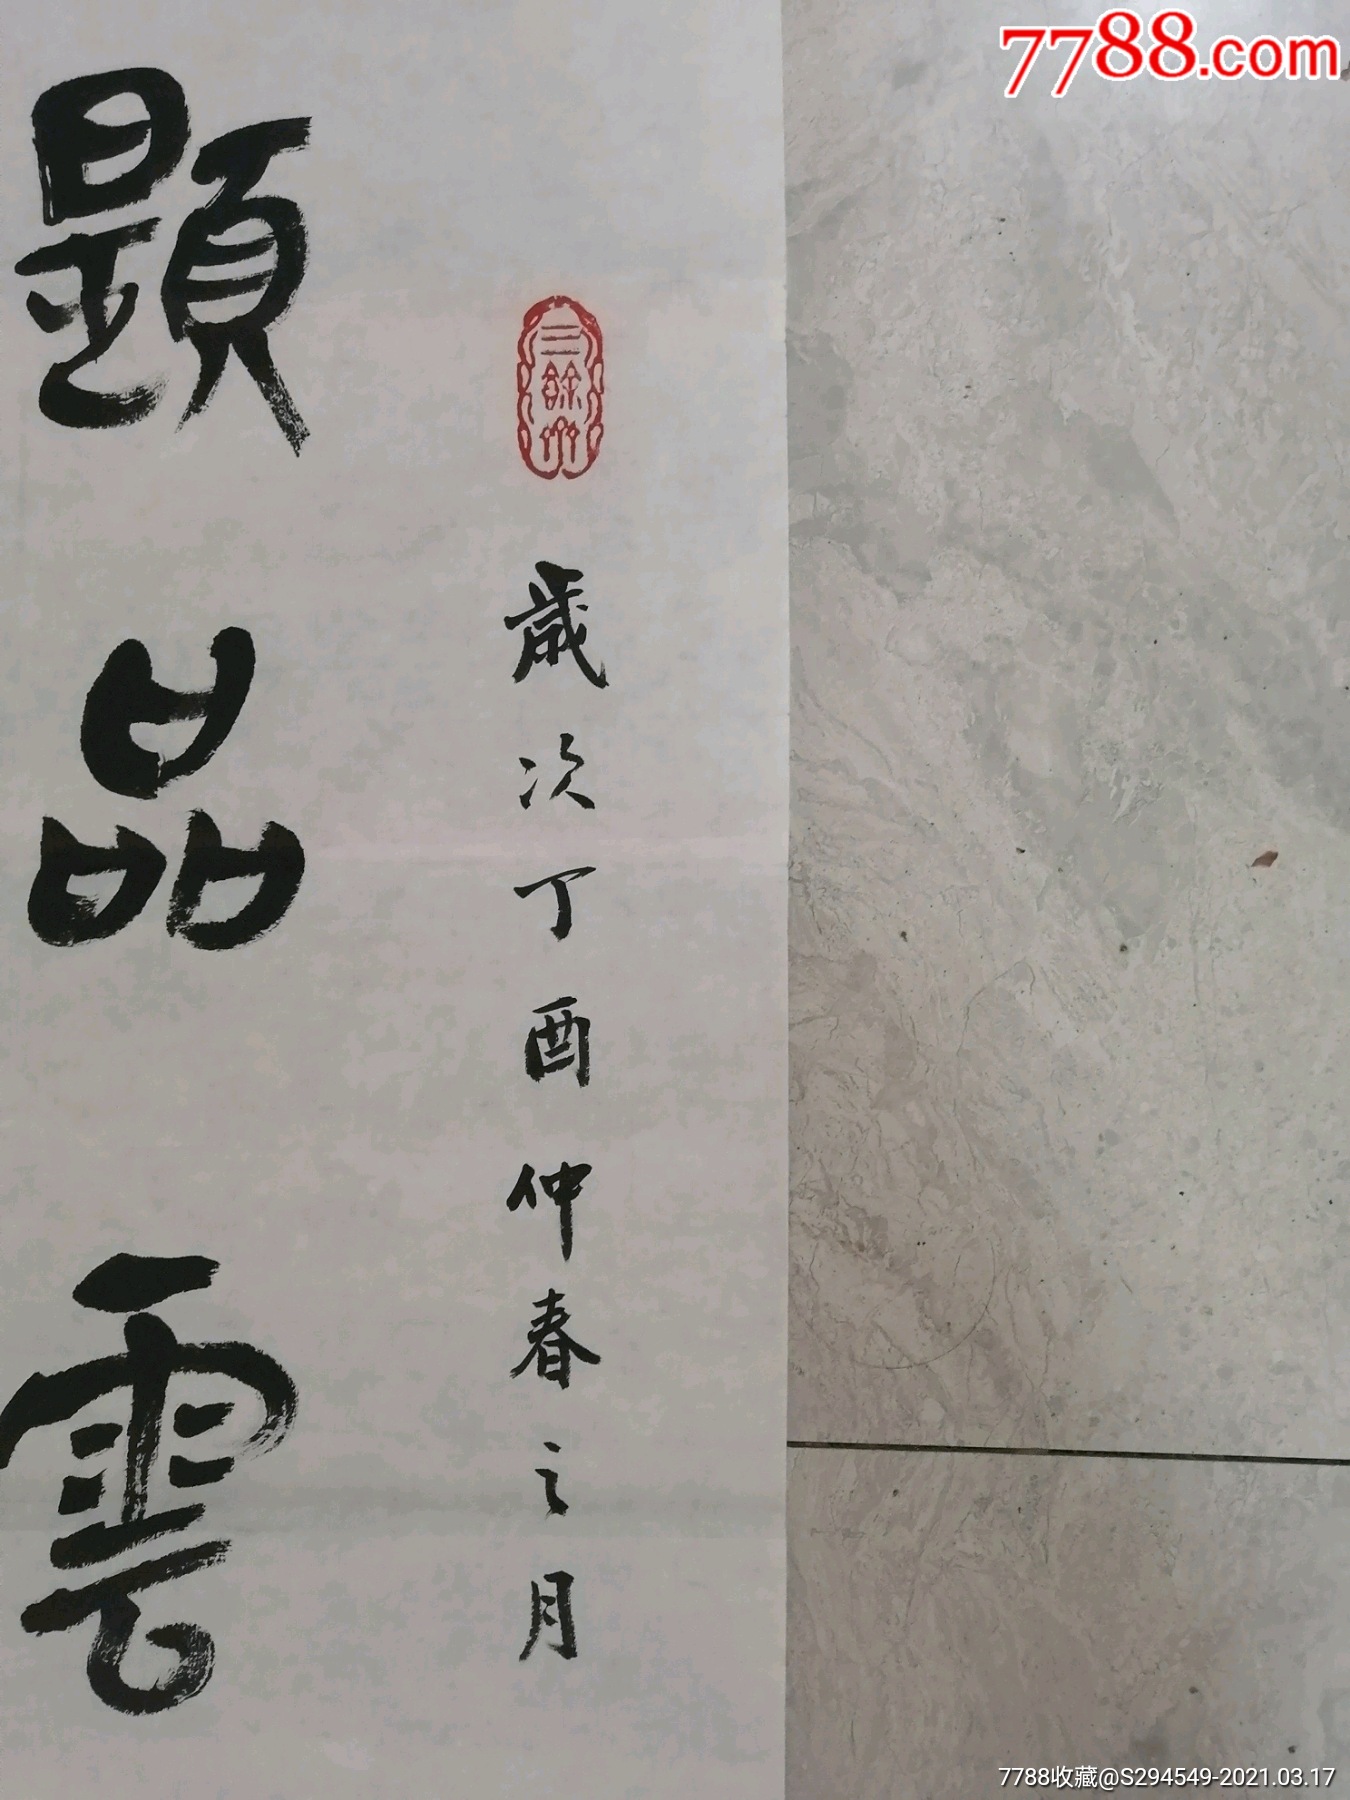 7788.com
歲次丁酉仲春之月
題品雲
7788收藏@S294549-2021.03.17